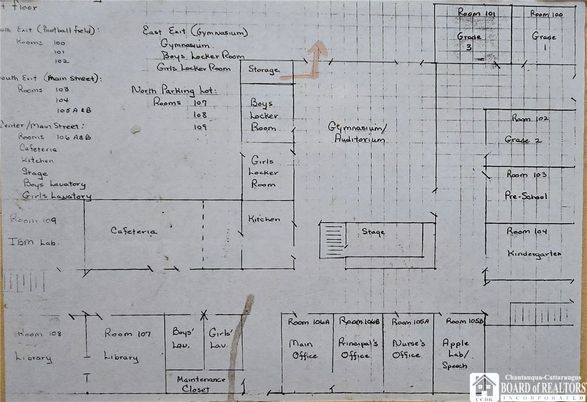 Floor
Exit (Football field):
Rooms 100
101
102
South Exit (Main Street):
Rooms 103
104
105 A&B
Center/Main Street:
Rooms 106 A&B
Cafeteria
Kitchen
Stage
Boys Lavatory
Girls Lavatory
East Exit (Gymnasium)
Gymnasium
Boys Locker Room
Girls Locker Room
North Parking Lot:
Rooms 107
108
109
Storage
Boys
Locker
Room
Girls
Locker
Room
Kitchen
Gymnasium/
Auditorium
Stage
Room 101
Grade
3
Room 100
Grade
1
Room 102
Grade 2
Room 103
Pre-School
Room 104
Kindergarten
Room 109
IBM Lab.
Cafeteria
Room 108
Library
Room 107
Library
Boys'
Lav.
Girls'
Lav.
Maintenance
Closet
Room 106A
Main
Office
Room 106B
Principal's
Office
Room 105A
Nurse's
Office
Room 105B
Apple
Lab/
Speech
Chautauqua-Cattaraugus
BOARD of REALTORS
INCORPORATED